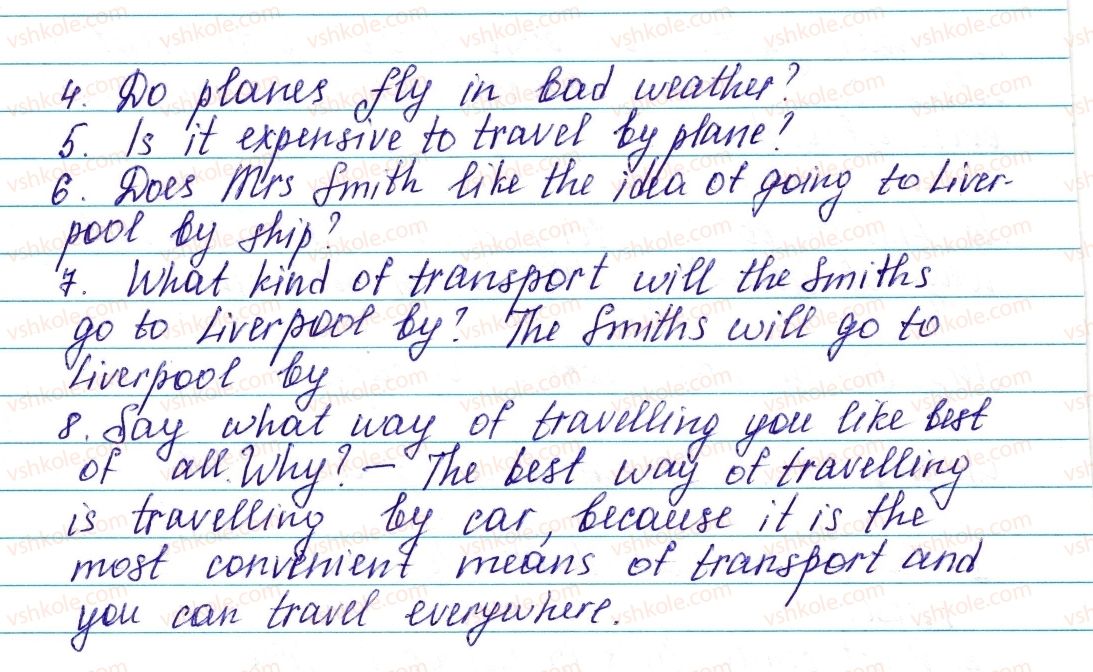 4. Do planes fly in bad weather?
5. Is it expensive to travel by plane?
6. Does Mrs Smith like the idea of going to Liver-
pool by ship?
7. What kind of transport will the Smiths
go to Liverpool by? The Smiths will go to
Liverpool by
8. Say what way of travelling you like best
of all. Why? – The best way of travelling
is travelling by car, because it is the
most convenient means of transport and
you can travel everywhere.